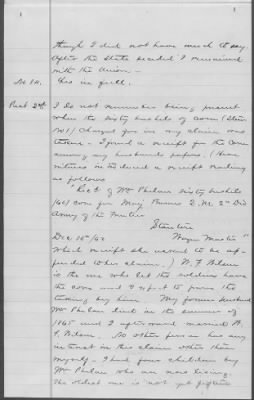 though I did not have much to say.
After the State seceded I remained
with the Union —
yes in full.
I do not remember being present
when the sixty bushels of corn (Item
No 1) charged for in my claim was
taken — I found a receipt for the corn
among my husbands papers. (Here
witness introduced a receipt reading
as follows
"Recd of Wm Phelan sixty bushels
(60) corn for Maj. Q. M. 2nd Div
Army of the Frontier
Dec 18th /62 Wagon Master"
Which receipt she asked to be ap-
pended to her claim.) W. F. Wilson
is the one who let the soldiers have
the corn and I expect to prove the
taking by him. My former husband
Wm Phelan died in the summer of
1865 and I afterward married W.
F. Wilson. No other person has any
interest in this claim other than
myself — I had four children by
Wm Phelan who are now living.
The oldest one is not yet fifteen